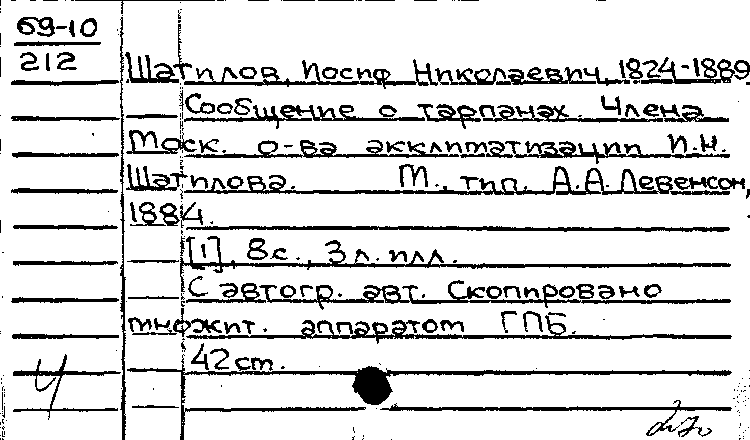 69-10
212
Шатилов, Иосиф Николаевич, 1824-1889
Сообщение о тарпанах. Члена
Моск. о-ва акклиматизации И.Н.
Шатилова. М., тип. А.А. Левенсон,
1884.
[1], 8 с., 3 л. илл.
С автогр. авт. Скопировано
множит. аппаратом ГПБ.
42 ст.
Ч